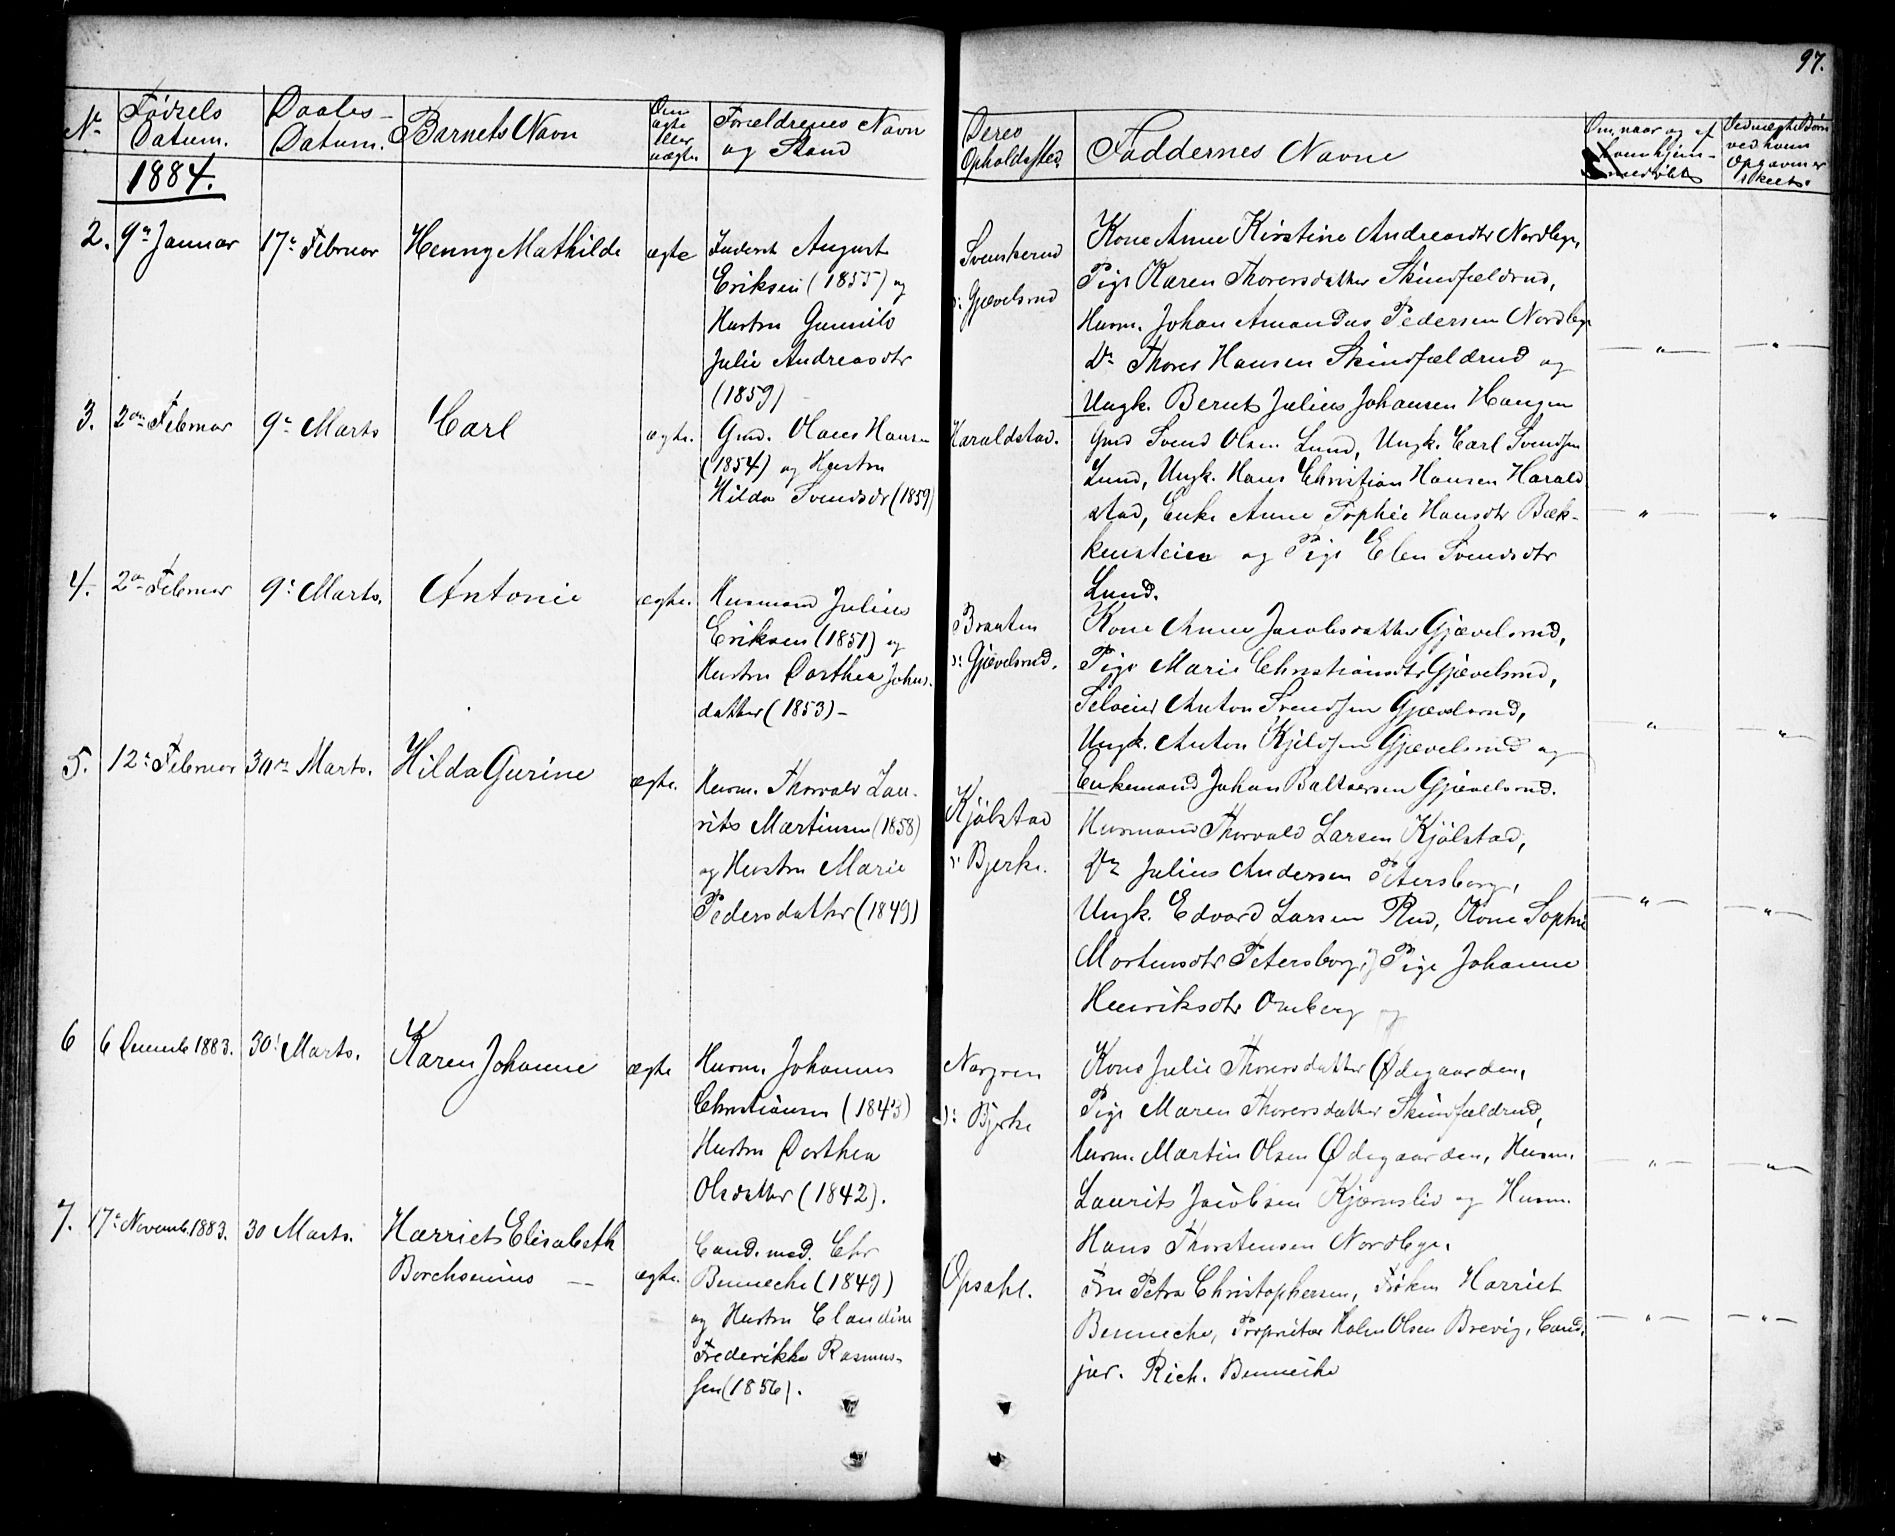 97.
No
Fødsels Datum.
Daabs-Datum.
Barnets Navn
Om ægte eller uægte
Forældrenes Navn og Stand
Deres Opholdssted.
Faddernes Navne
Om, naar og af hvem hjemmedøbt
Ved uægte Børn ved hvem Opgaven er skeet.
1884.
2. 9n Januar
17n Februar
Henny Mathilde
ægte
Inderst August
Eriksen (1855) og
Hustru Gunnild
Julie Andreasdtr
(1859)
Svenskerud
o: Gjævelsrud
Kone Anne Kirstine Andreasdtr Nordbye,
Pige Karen Thorersdatter Skindfældrud,
Husm. Johan Amandus Pedersen Nordbye
Do Thorer Hansen Skindfældrud og
Ungk. Bernts Julius Johansen Haugen
— " —
— " —
3. 2den Februar
9n Marts
Carl
ægte.
Gmd. Olaus Hansen
(1854) og Hustru
Hilda Svendsdr (1859)
Haraldstad.
Gmd Svend Olsen Lund, Ungk. Carl Svendsen
Lund, Ungk. Hans Christian Hansen Harald
stad, Enke Anne Sophie Hansdtr Bæk-
kensteien og Pige Elen Svendsdtr
Lund.
— " —
— " —
4. 2den Februar
9n Marts.
Antonie
ægte.
Husmand Julius
Eriksen (1851) og
Hustru Dorthea Johns.
datter (1853) —
Braaten
o: Gjævelsrud.
Kone Anne Jacobsdatter Gjævelsrud,
Pige Marie Christiansdtr Gjævelsrud,
Selveier Anton Svendsen Gjævelsrud,
Ungk. Anton Kjeldsen Gjævelsrud og
Enkemand Johan Baltsersen Gjævelsrud.
— " —
— " —
5. 12n Februar
30n Marts.
Hilda Gurine
ægte.
Husm. Thorvald Lau-
rits Martinsen (1858)
og Hustru Marie
Pedersdatter (1849)
Kjølstad
o: Bjerke.
Husmand Thorvald Larsen Kjølstad,
Do Julius Andersen Petersborg,
Ungk. Edvard Larsen Rud, Kone Sophie
Mortensdtr Petersborg, og Pige Johanne
Henriksdtr Omberg
— " —
— " —
6 6 Decemb 1883.
30n Marts.
Karen Johanne
ægte
Husm. Johannes
Christiansen (1843)
Hustru Dorthea
Olsdatter (1842).
Norgren
o: Bjerke
Kone Julie Thorersdatter Ødegaarden,
Pige Maren Thorersdatter Skindfældrud,
Husm. Martin Olsen Ødegaarden, Husm.
Laurits Jacobsen Kjærnslid og Husm.
Hans Thorstensen Nordbye.
— " —
— " —
7. 17n Novemb. 1883.
30 Marts.
Harriet Elisabeth
Borchsenius —
ægte.
Cand. med. Chr
Benneche (1849)
og Hustru Claudine
Frederikke Rasmus-
sen (1856).
Opsahl.
Fru Petra Christophersen, Frøken Harriet
Benneche, Proprietær Holm Olsen Brevig, Cand.
jur. Rich. Benneche
— " —
— " —